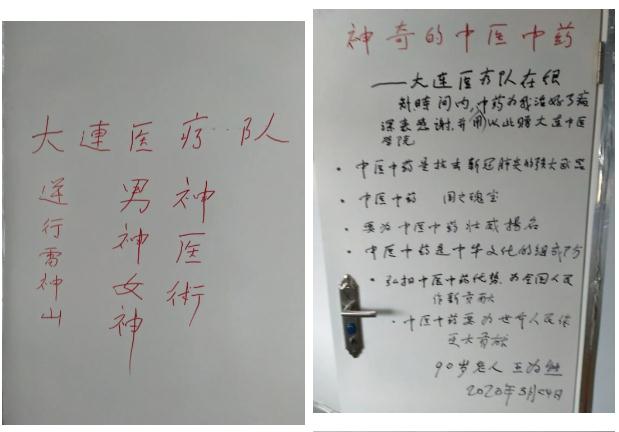 大連医疗队
神医術
男神女神
逆行雷神山
神奇的中医中药
——大连医疗队在线
短時间内,中药为我治好了病
深表感谢,并用以此赠大连中医
学院
· 中医中药是抗击新冠肺炎的强大武器
· 中医中药 国之瑰宝
· 要为中医中药壮威揚名
· 中医中药是中华文化的组成部分
· 弘扣中医中药优势,为全国人民
作新贡献
· 中医中药要为世界人民作
更大贡献
90岁老人 王为
2020年3月24日